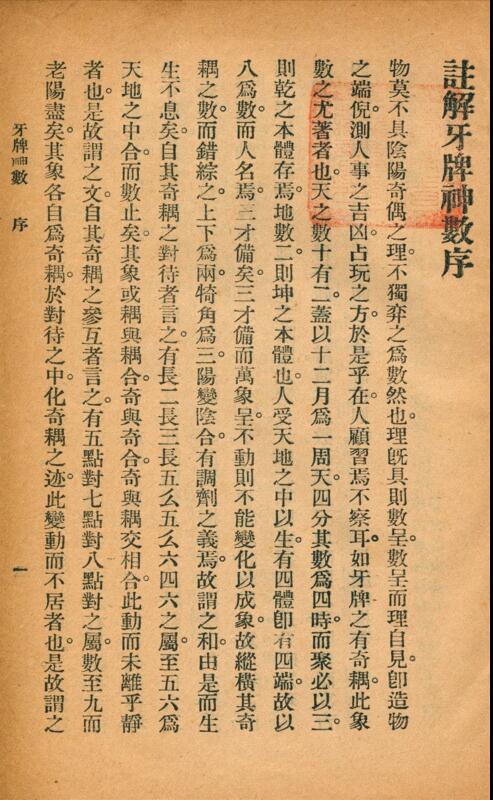 註解牙牌神數序
物莫不具陰陽奇偶之理。不獨弈之爲數然也。理旣具則數呈。數呈而理自見。卽造物
之端倪。測人事之吉凶。占玩之方。於是乎在。人顧習焉不察耳。如牙牌之有奇耦。此象
數之尤著者也。天之數十有二。蓋以十二月爲一周天。四分其數爲四時。而聚必以三。
則乾之本體存焉。地數二。則坤之本體也。人受天地之中以生。有四體卽有四端。故以
八爲數而人名焉。三才備矣。三才備而萬象呈。不動則不能變化以成象。故縱橫其奇
耦之數而錯綜之。上下爲兩。犄角爲三。陽變陰合。有調劑之義焉。故謂之和。由是而生
生不息矣。自其奇耦之對待者言之。有長二長三長五么五么六四六之屬。至五六爲
天地之中合而數止矣。其象或耦與耦合。奇與奇合。奇與耦交相合。此動而未離乎靜
者也。是故謂之文。自其奇耦之參互者言之。有五點對七點對八點對之屬。數至九而
老陽盡矣。其象各自爲奇耦。於對待之中。化奇耦之迹。此變動而不居者也。是故謂之
牙牌神數 序
一